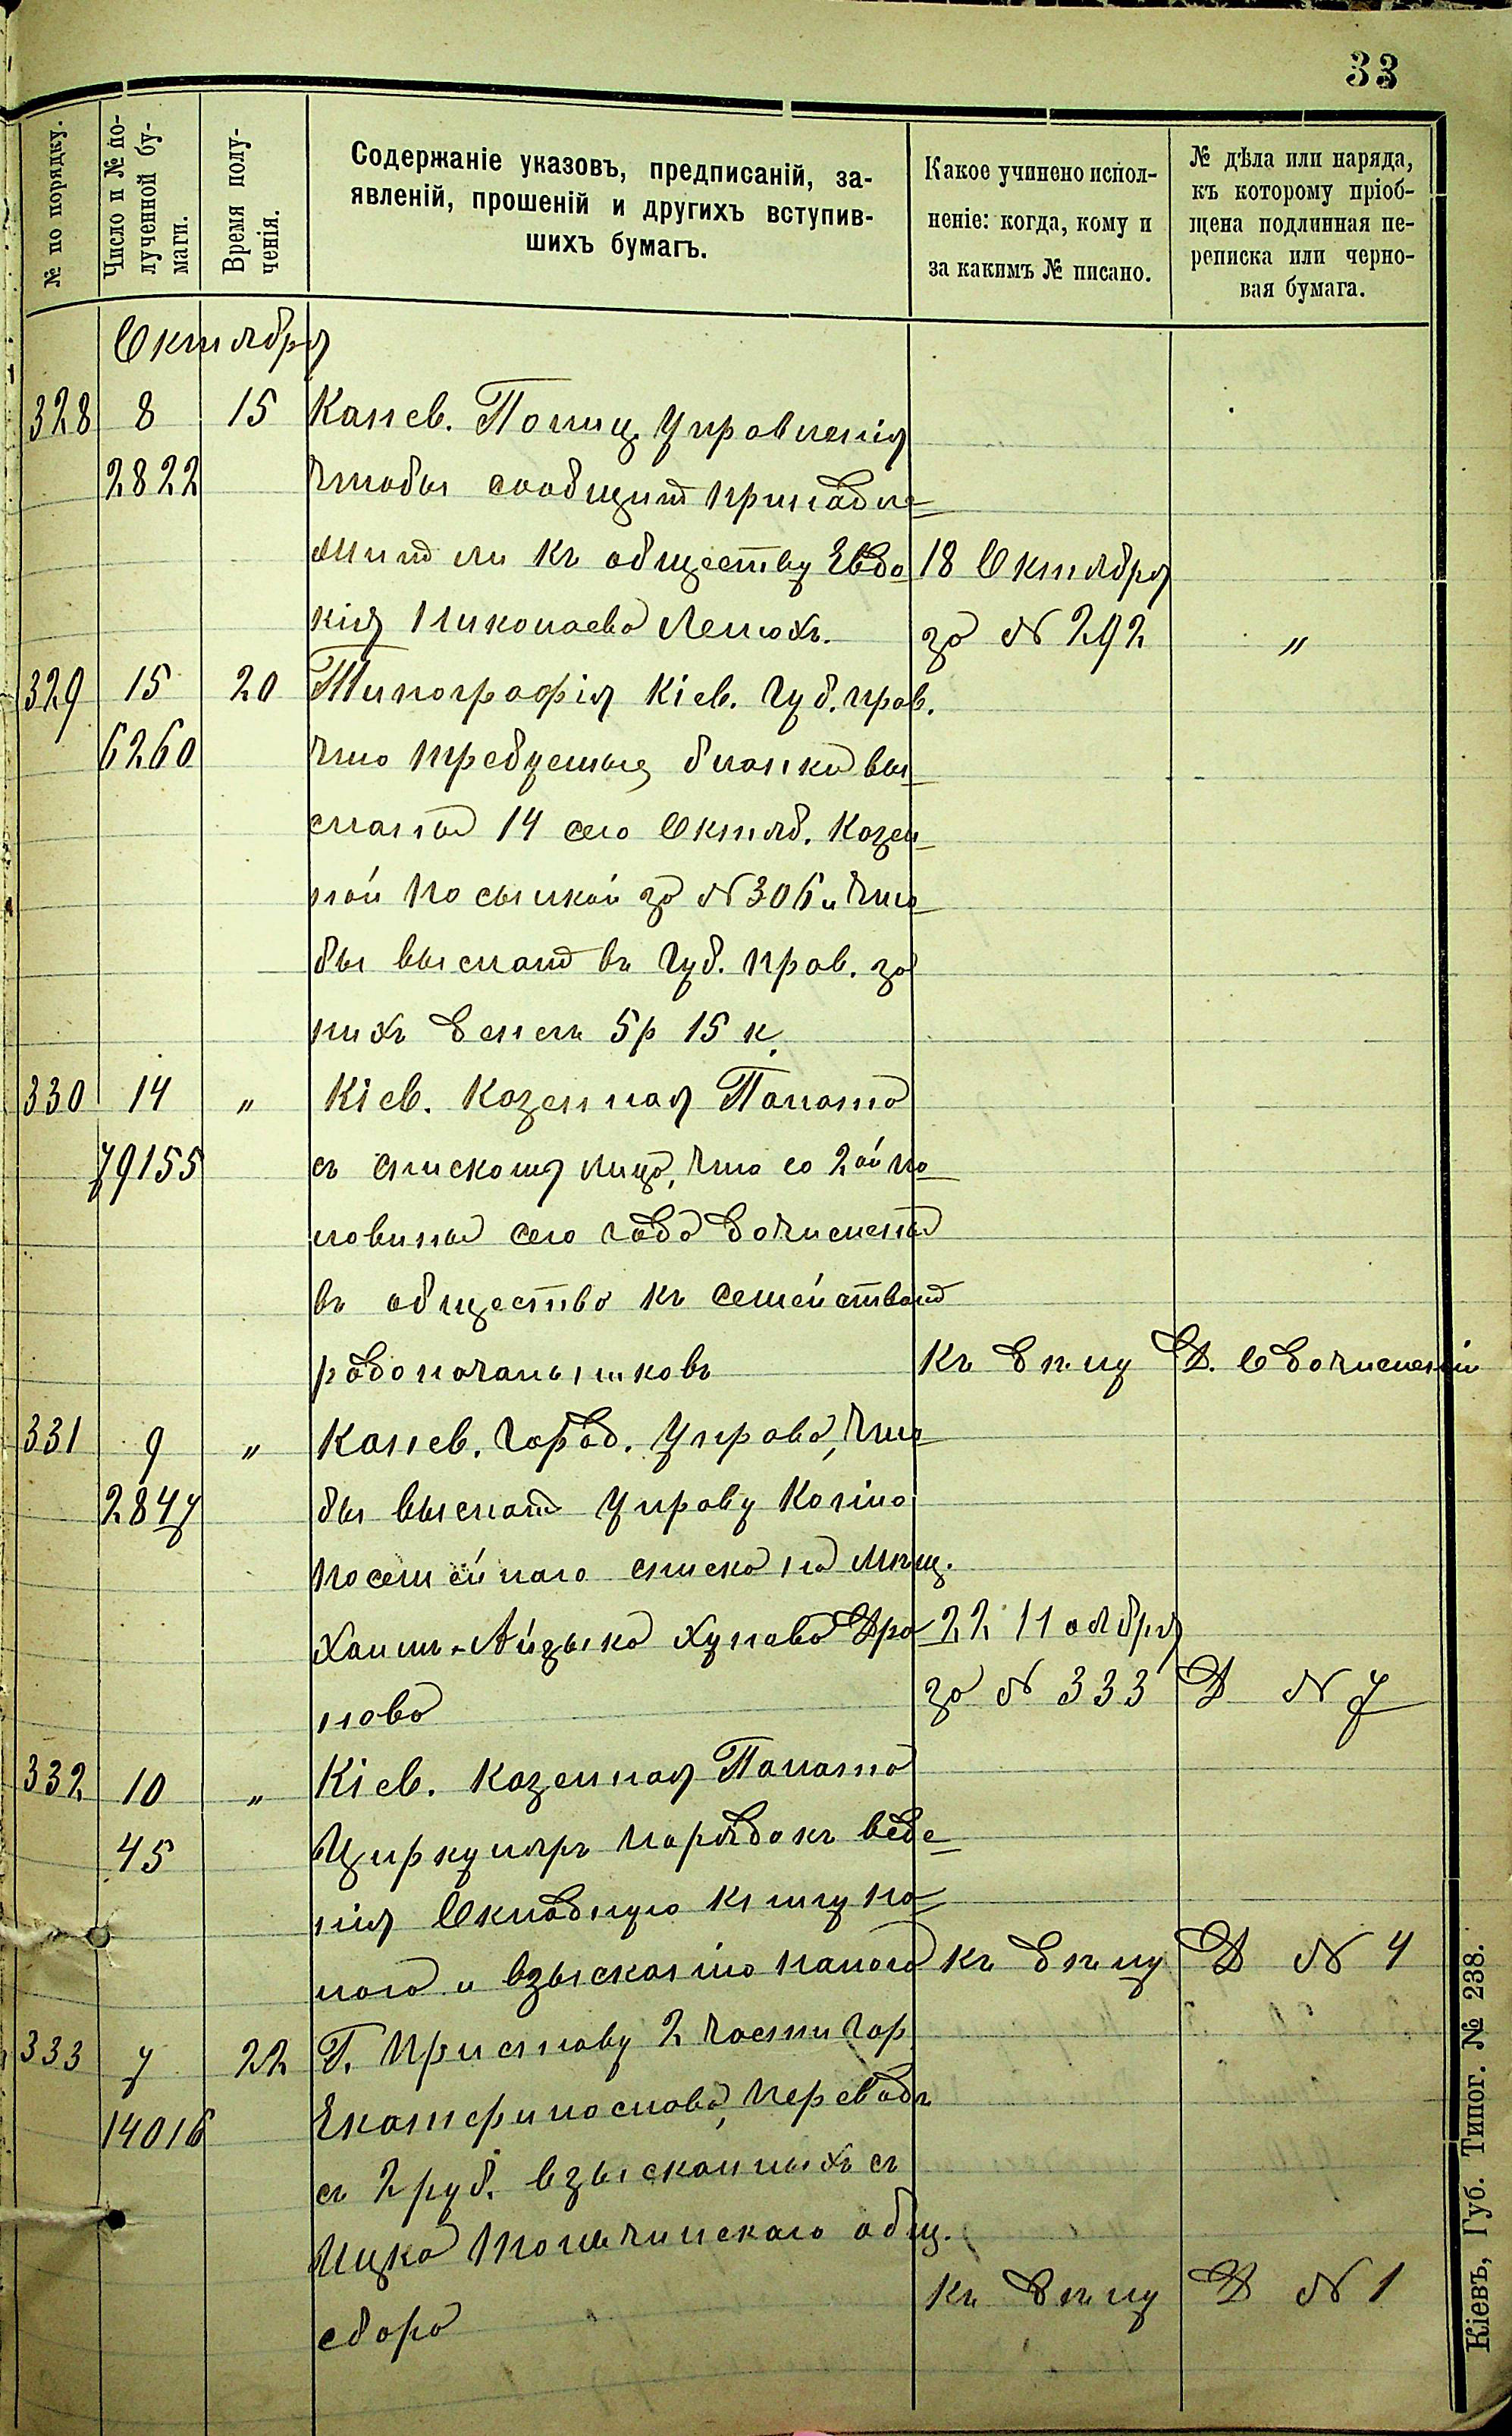 33
№ по порядку.
Число и № по-
лученной бу-
маги.
Время полу-
ченія.
Содержаніе указовъ, предписаній, за-
явленій, прошеній и другихъ вступив-
шихъ бумагъ.
Какое учинено испол-
неніе: когда, кому и
за какимъ № писано.
№ дѣла или наряда,
къ которому пріоб-
щена подлинная пе-
реписка или черно-
вая бумага.
Октября
328 8 15 Канев. Полиц. Управленія
2822 чтобы сообщит принадле-
жит ли къ обществу Евдо 18 Октября
кія Николаева за № 292 "
329 15 20 Типографія Кіев. Губ. прав.
6260 что требуемые бланки вы-
сланы 14 сего Октяб. Казен-
ной посылкой за № 306 и что-
бы выслат въ Губ. прав. за
нихъ денегъ 5 р 15 к.
330 14 " Кіев. Казенная Палата
79155 съ списком лицъ, что со 2ой по-
ловины сего года дочислены
въ общество къ семействам
родоначальниковъ къ дѣлу Д. О дочисленіи
331 9 " Канев. Город. Управа, что-
2847 бы выслат Управу Копію
посемейнаго списка на Мѣщ.
Хаим-Айзыка 22 Ноября
нова за № 333 Д № 7
332 10 " Кіев. Казенная Палата
45 Циркуляръ порядокъ веде-
нія Окладную книгу на-
лога и взысканію налога къ дѣлу Д № 4
333 7 22 Г. Приставу 2 части гор.
14016 Екатеринослава, переводъ
съ 2 руб. взысканныхъ съ
Ицка общ.
сбора къ дѣлу Д № 1
Кіевъ, Губ. Типог. № 238.